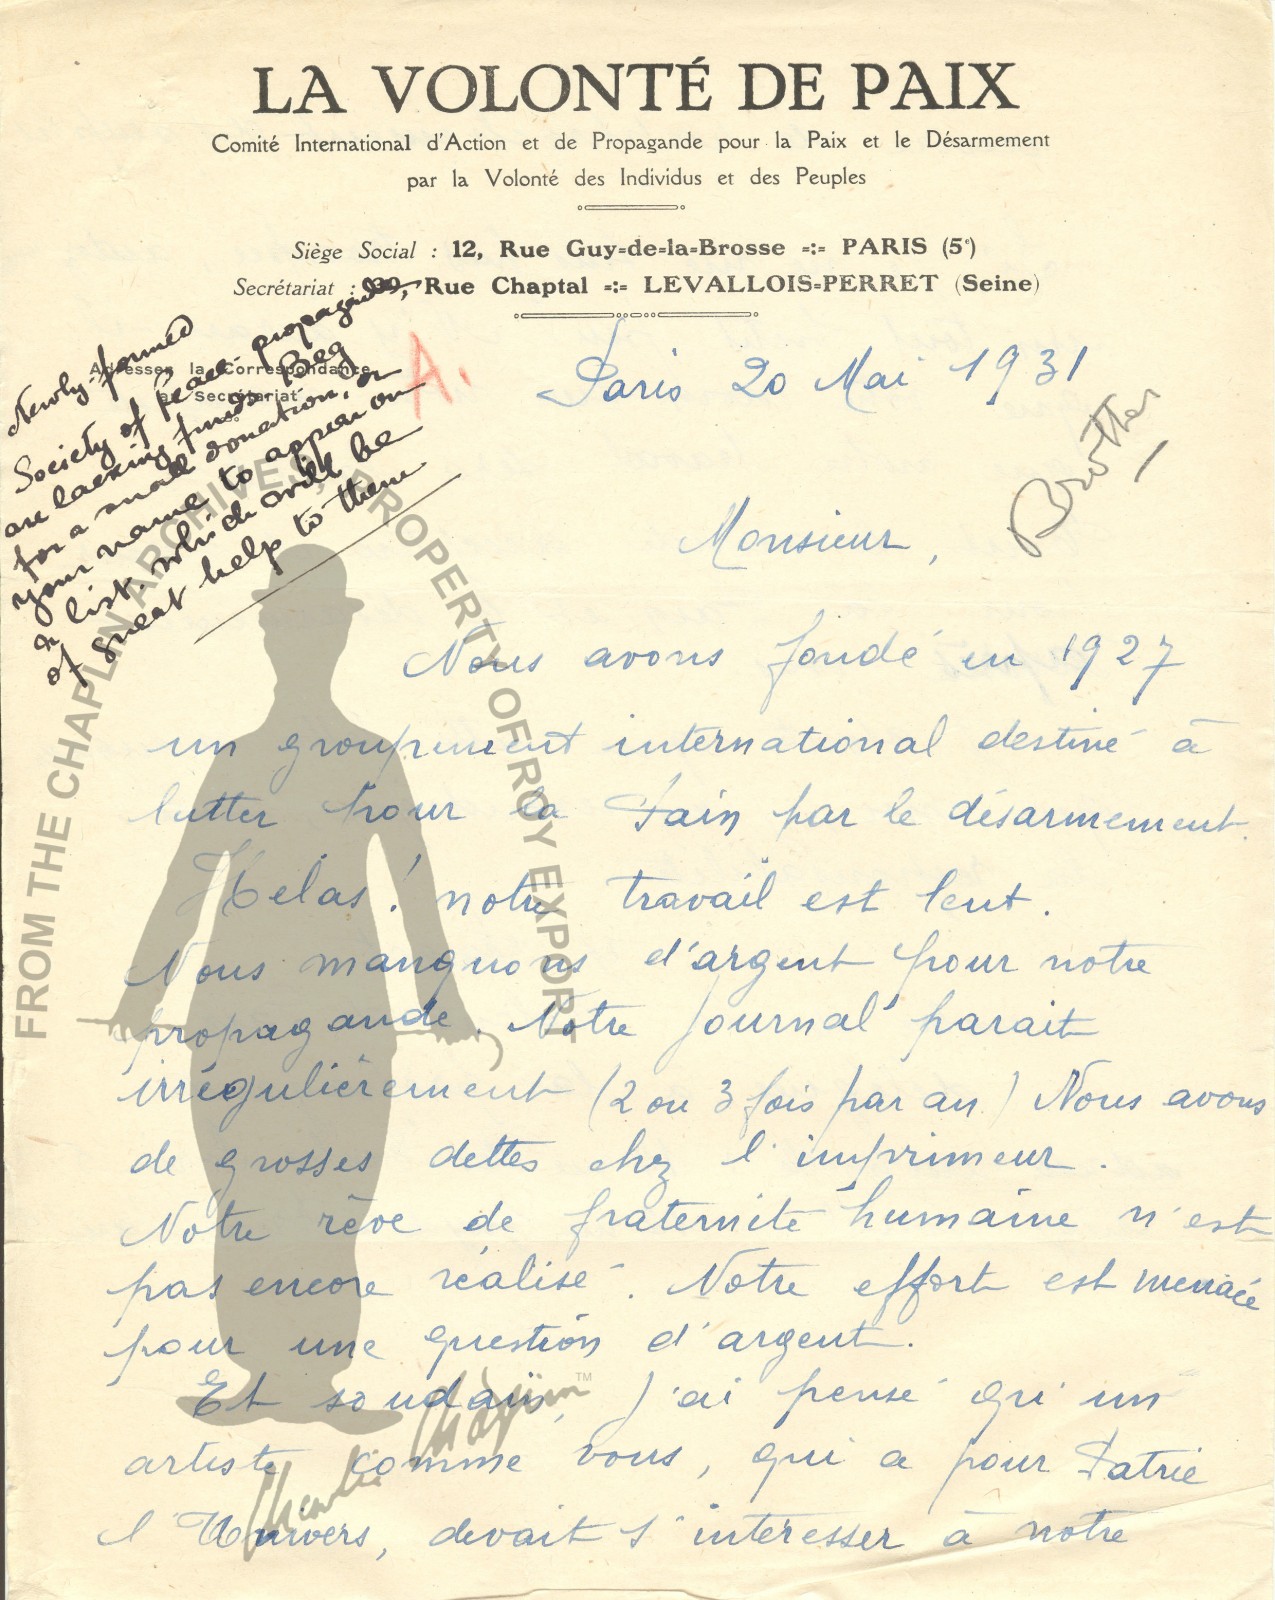 LA VOLONTÉ DE PAIX
Comité International d'Action et de Propagande pour la Paix et le Désarmement
par la Volonté des Individus et des Peuples
Siège Social : 12, Rue Guy-de-la-Brosse -:- PARIS (5ᵉ)
Secrétariat : Rue Chaptal -:- LEVALLOIS-PERRET (Seine)
Adresser la Correspondance
au Secrétariat
Newly-formed
Society of Peace-propaganda,
are lacking funds. Beg
for a small donation, or
your name to appear on
a list. which will be
of great help to them
A.
Paris 20 Mai 1931
Brotter
Monsieur,
Nous avons fondé en 1927
un groupement international destiné à
lutter pour la Paix par le désarmement.
Hélas! notre travail est lent.
Nous manquons d'argent pour notre
propagande. Notre journal parait
irrégulièrement (2 ou 3 fois par an) Nous avons
de grosses dettes chez l'imprimeur.
Notre rêve de fraternité humaine n'est
pas encore réalisé. Notre effort est menacé
pour une question d'argent.
Et soudain, j'ai pensé qu'un
artiste comme vous, qui a pour Patrie
l'Univers, devait s'intéresser à notre
FROM THE CHAPLIN ARCHIVES, PROPERTY OF ROY EXPORT
Charlie Chaplin ™